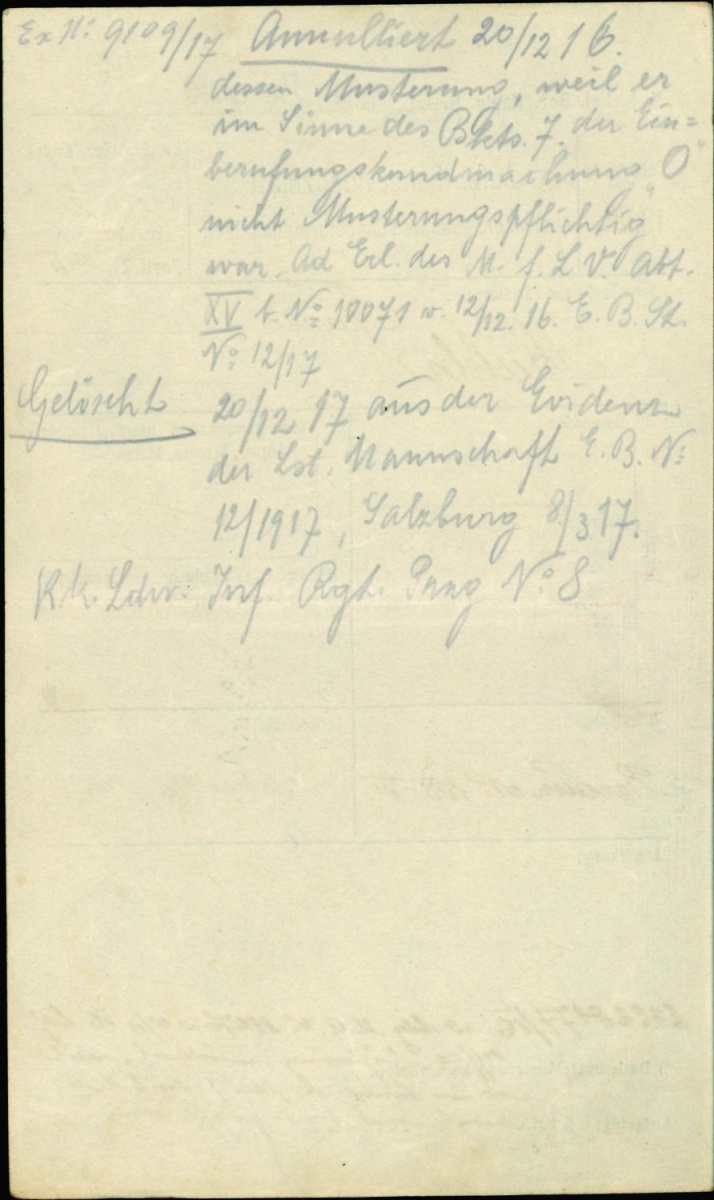 Ex Nr: 9109/17 Annulliert 20/12 16.
dessen Musterung, weil er
im Sinne des Pkts. 7. der Ein=
berufungskundmachung „O“
nicht Musterungspflichtig
war. Ad Erl. des M. f. L. V. Abt.
XV t. No 10071 v. 12/12. 16. E. B. St.
No 12/17
Gelöscht 20/12 17 aus der Evidenz
der Lst. Mannschaft E. B. No
12/1917, Salzburg 8/3 17.
K.k. Ldw. Inf. Rgt. Prag No 8